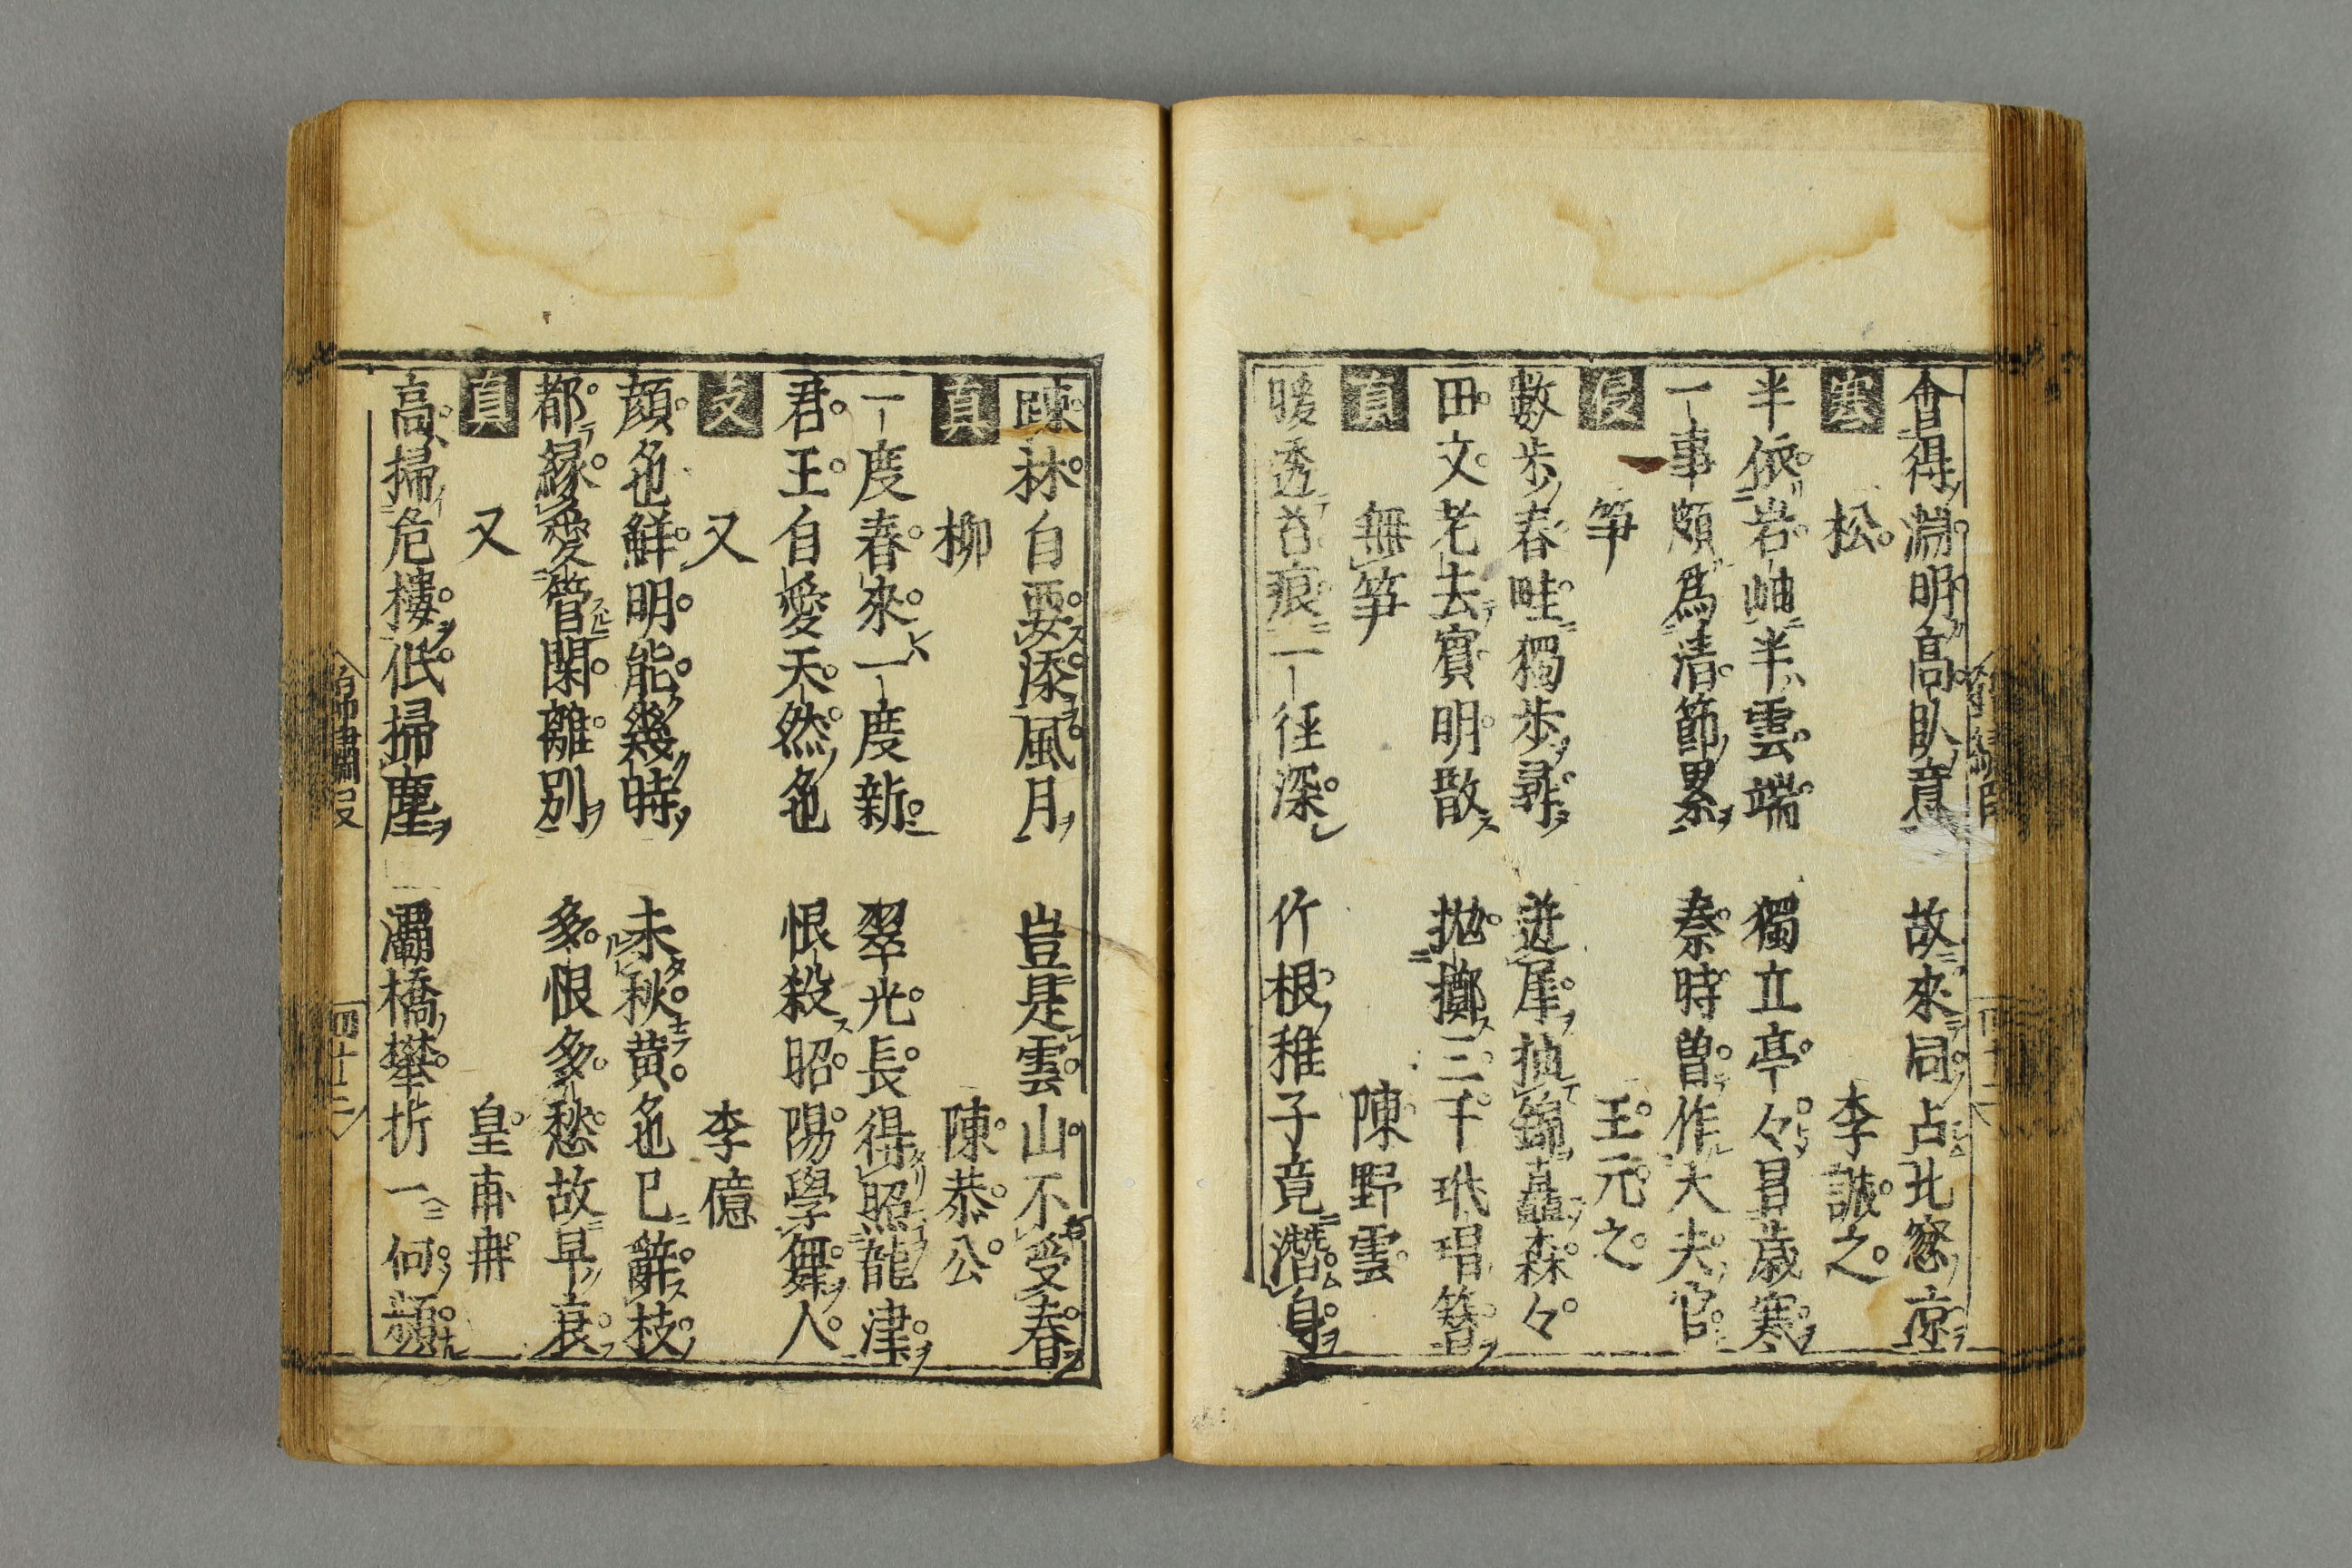 會得淵明高臥意　故來同占北窓凉
寒　松　李誠之
半依岩岫半雲端　獨立亭々昌歳寒
一事頗爲清節累　秦時曽作大夫官
侵　笋　王元之
數歩春畦獨歩尋　迸犀抽錦矗森々
田文老去賓明散　抛擲三千玳瑁簪
眞　無笋　陳野雲
暖透苔痕一径深　竹根稚子竟潜身
踈林自要添風月　豈是雲山不受春
眞　柳　陳恭公
一度春來一度新　翠光長得照龍津
君王自愛天然色　恨殺昭陽學舞人
支　又　李億
顔色鮮明能幾時　未秋黄色已辭枝
都縁愛管閑離別　多恨多愁故早衰
眞　又　皇甫冉
高掃危樓低掃塵　灞橋攀折一何頻
四十二